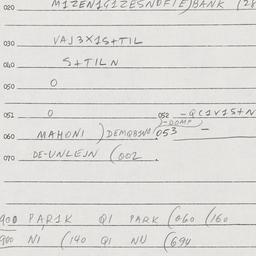 020 M1ZEN1G1ZESNDFIE)BANK (28
030 VAJ3X1S+TIL
040 S+TILN
050 0
051 0 052 -QC1V1S+N
)-DOMP
060 MAHONI )DEMQB1N1 (053 -
070 DE-UNLEJN (002 .
900 PAR1K Q1 PARK (060 (160
980 N1 (140 Q1 NU (694